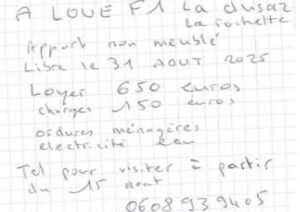 A LOUE F1 La clusaz
La rochette
Appart non meublé
Libre le 31 AOUT 2025
Loyer 650 euros
charges 150 euros
ordures ménagères
electricité eau
Tel pour visiter = partir
du 15 aout
0608939405